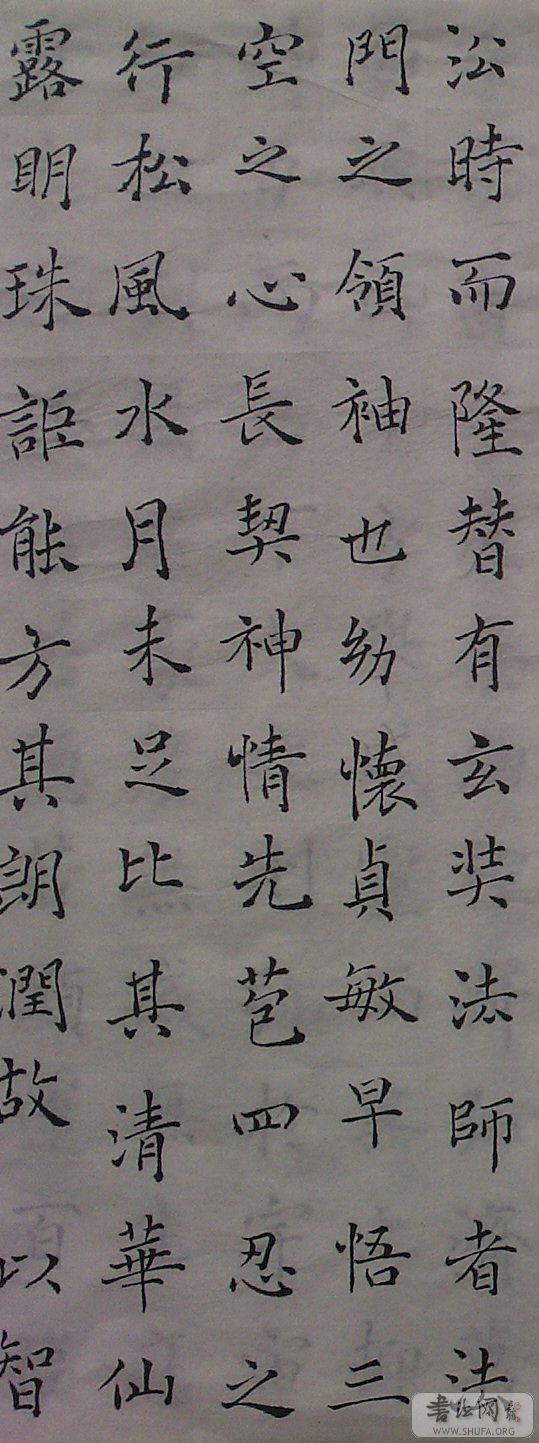 讼時而隆替有玄奘法師者法
門之領袖也幼懷貞敏早悟三
空之心長契神情先苞四忍之
行松風水月未足比其清華仙
露明珠詎能方其朗潤故以智
書法网
WWW.SHUFA.ORG